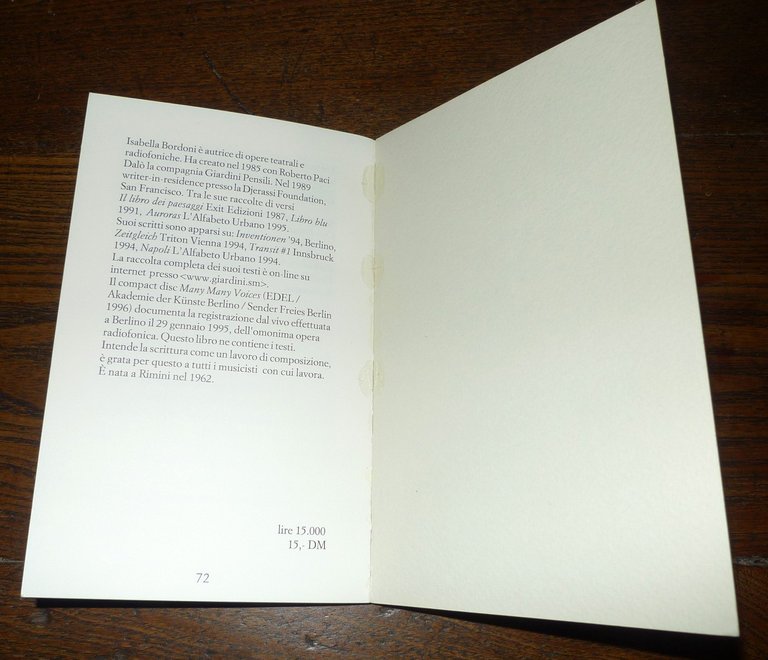 Isabella Bordoni è autrice di opere teatrali e
radiofoniche. Ha creato nel 1985 con Roberto Paci
Dalò la compagnia Giardini Pensili. Nel 1989
writer-in-residence presso la Djerassi Foundation,
San Francisco. Tra le sue raccolte di versi
Il libro dei paesaggi Exit Edizioni 1987, Libro blu
1991, Auroras L'Alfabeto Urbano 1995.
Suoi scritti sono apparsi su: Inventionen '94, Berlino,
Zeitgleich Triton Vienna 1994, Transit #1 Innsbruck
1994, Napoli L'Alfabeto Urbano 1994.
La raccolta completa dei suoi testi è on-line su
internet presso <www.giardini.sm>.
Il compact disc Many Many Voices (EDEL /
Akademie der Künste Berlino / Sender Freies Berlin
1996) documenta la registrazione dal vivo effettuata
a Berlino il 29 gennaio 1995, dell'omonima opera
radiofonica. Questo libro ne contiene i testi.
Intende la scrittura come un lavoro di composizione,
è grata per questo a tutti i musicisti con cui lavora.
È nata a Rimini nel 1962.
lire 15.000
15,- DM
72